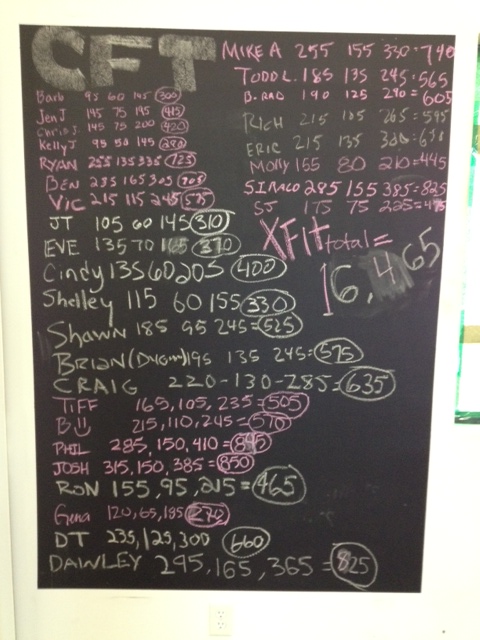 CFT
Barb 95 60 145 300
Jen J 145 75 195 415
Chris J. 145 75 200 420
Kelly J 95 50 145 290
RYAN 255 135 335 725
BEN 235 165 305 705
Vic 215 115 245 575
JT 105 60 145 310
EVE 135 70 165 370
Cindy 135 60 205 400
Shelley 115 60 155 330
Shawn 185 95 245 = 525
BRIAN (Dugan) 195 135 245 = 575
CRAIG 220-130-285 = 635
TIFF 165, 105, 235 = 505
B 215, 110, 245 = 570
PHIL 285, 150, 410 = 845
JOSH 315, 150, 385 = 850
RON 155, 95, 215 = 465
Gena 120, 65, 185 270
DT 235, 125, 300 660
DAWLEY 295, 165, 365 = 825
MIKE A 255 155 330 = 740
TODD L. 185 135 245 = 565
B. RAD 190 125 290 = 605
RICH 215 105 265 = 595
ERIC 215 135 300 = 650
Molly 155 80 210 = 445
SIRACO 285 155 385 = 825
SJ 175 75 225 = 475
XFIT total =
16,465